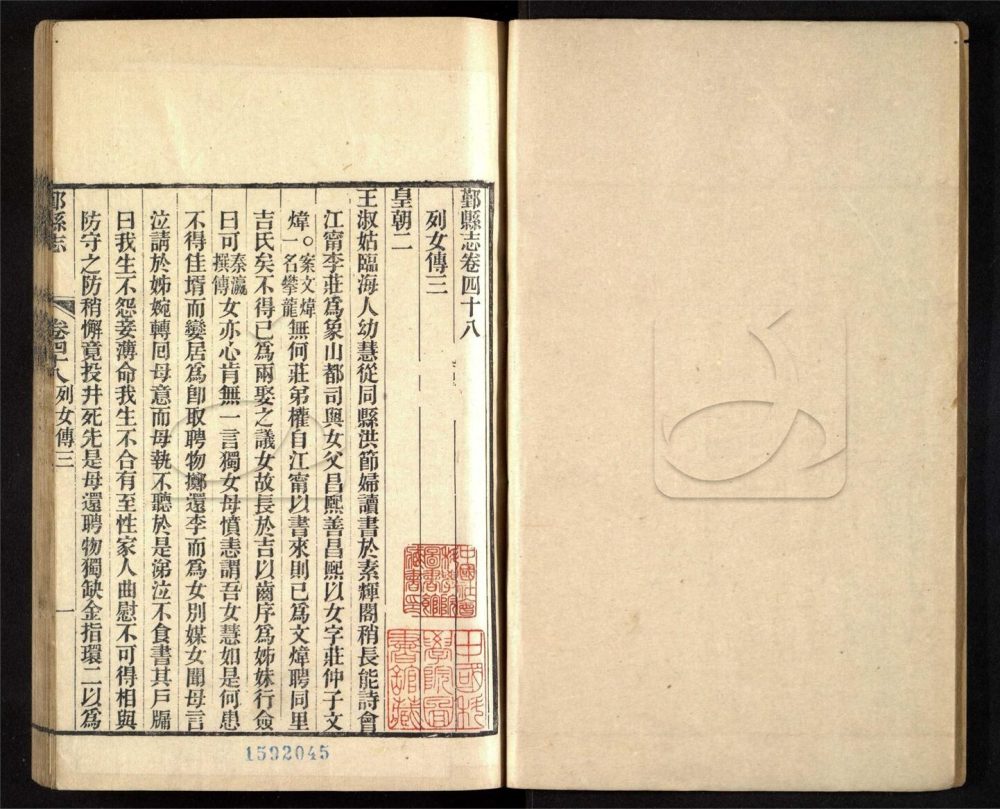 鄞縣志卷四十八
列女傳三
皇朝二
王淑姑臨海人幼慧從同縣洪節婦讀書於素輝閣稍長能詩會
江甯李莊爲象山都司與女父昌熙善昌熙以女字莊仲子文
煒○案文煒一名攀龍無何莊弟權自江甯以書來則已爲文煒聘同里
吉氏矣不得已爲兩娶之議女故長於吉以齒序爲姊妹行僉
曰可秦瀛撰傳女亦心肯無一言獨女母憤恚謂吾女慧如是何患
不得佳壻而孌居爲卽取聘物擲還李而爲女別媒女聞母言
泣請於姊婉轉回母意而母執不聽於是涕泣不食書其戸牖
曰我生不怨妾薄命我生不合有至性家人曲慰不可得相與
防守之防稍懈竟投井死先是母還聘物獨缺金指環二以爲
鄞縣志
卷四十八列女傳三
一
中國社會科學院圖書館藏書印
中國科學院圖書館藏
1592045